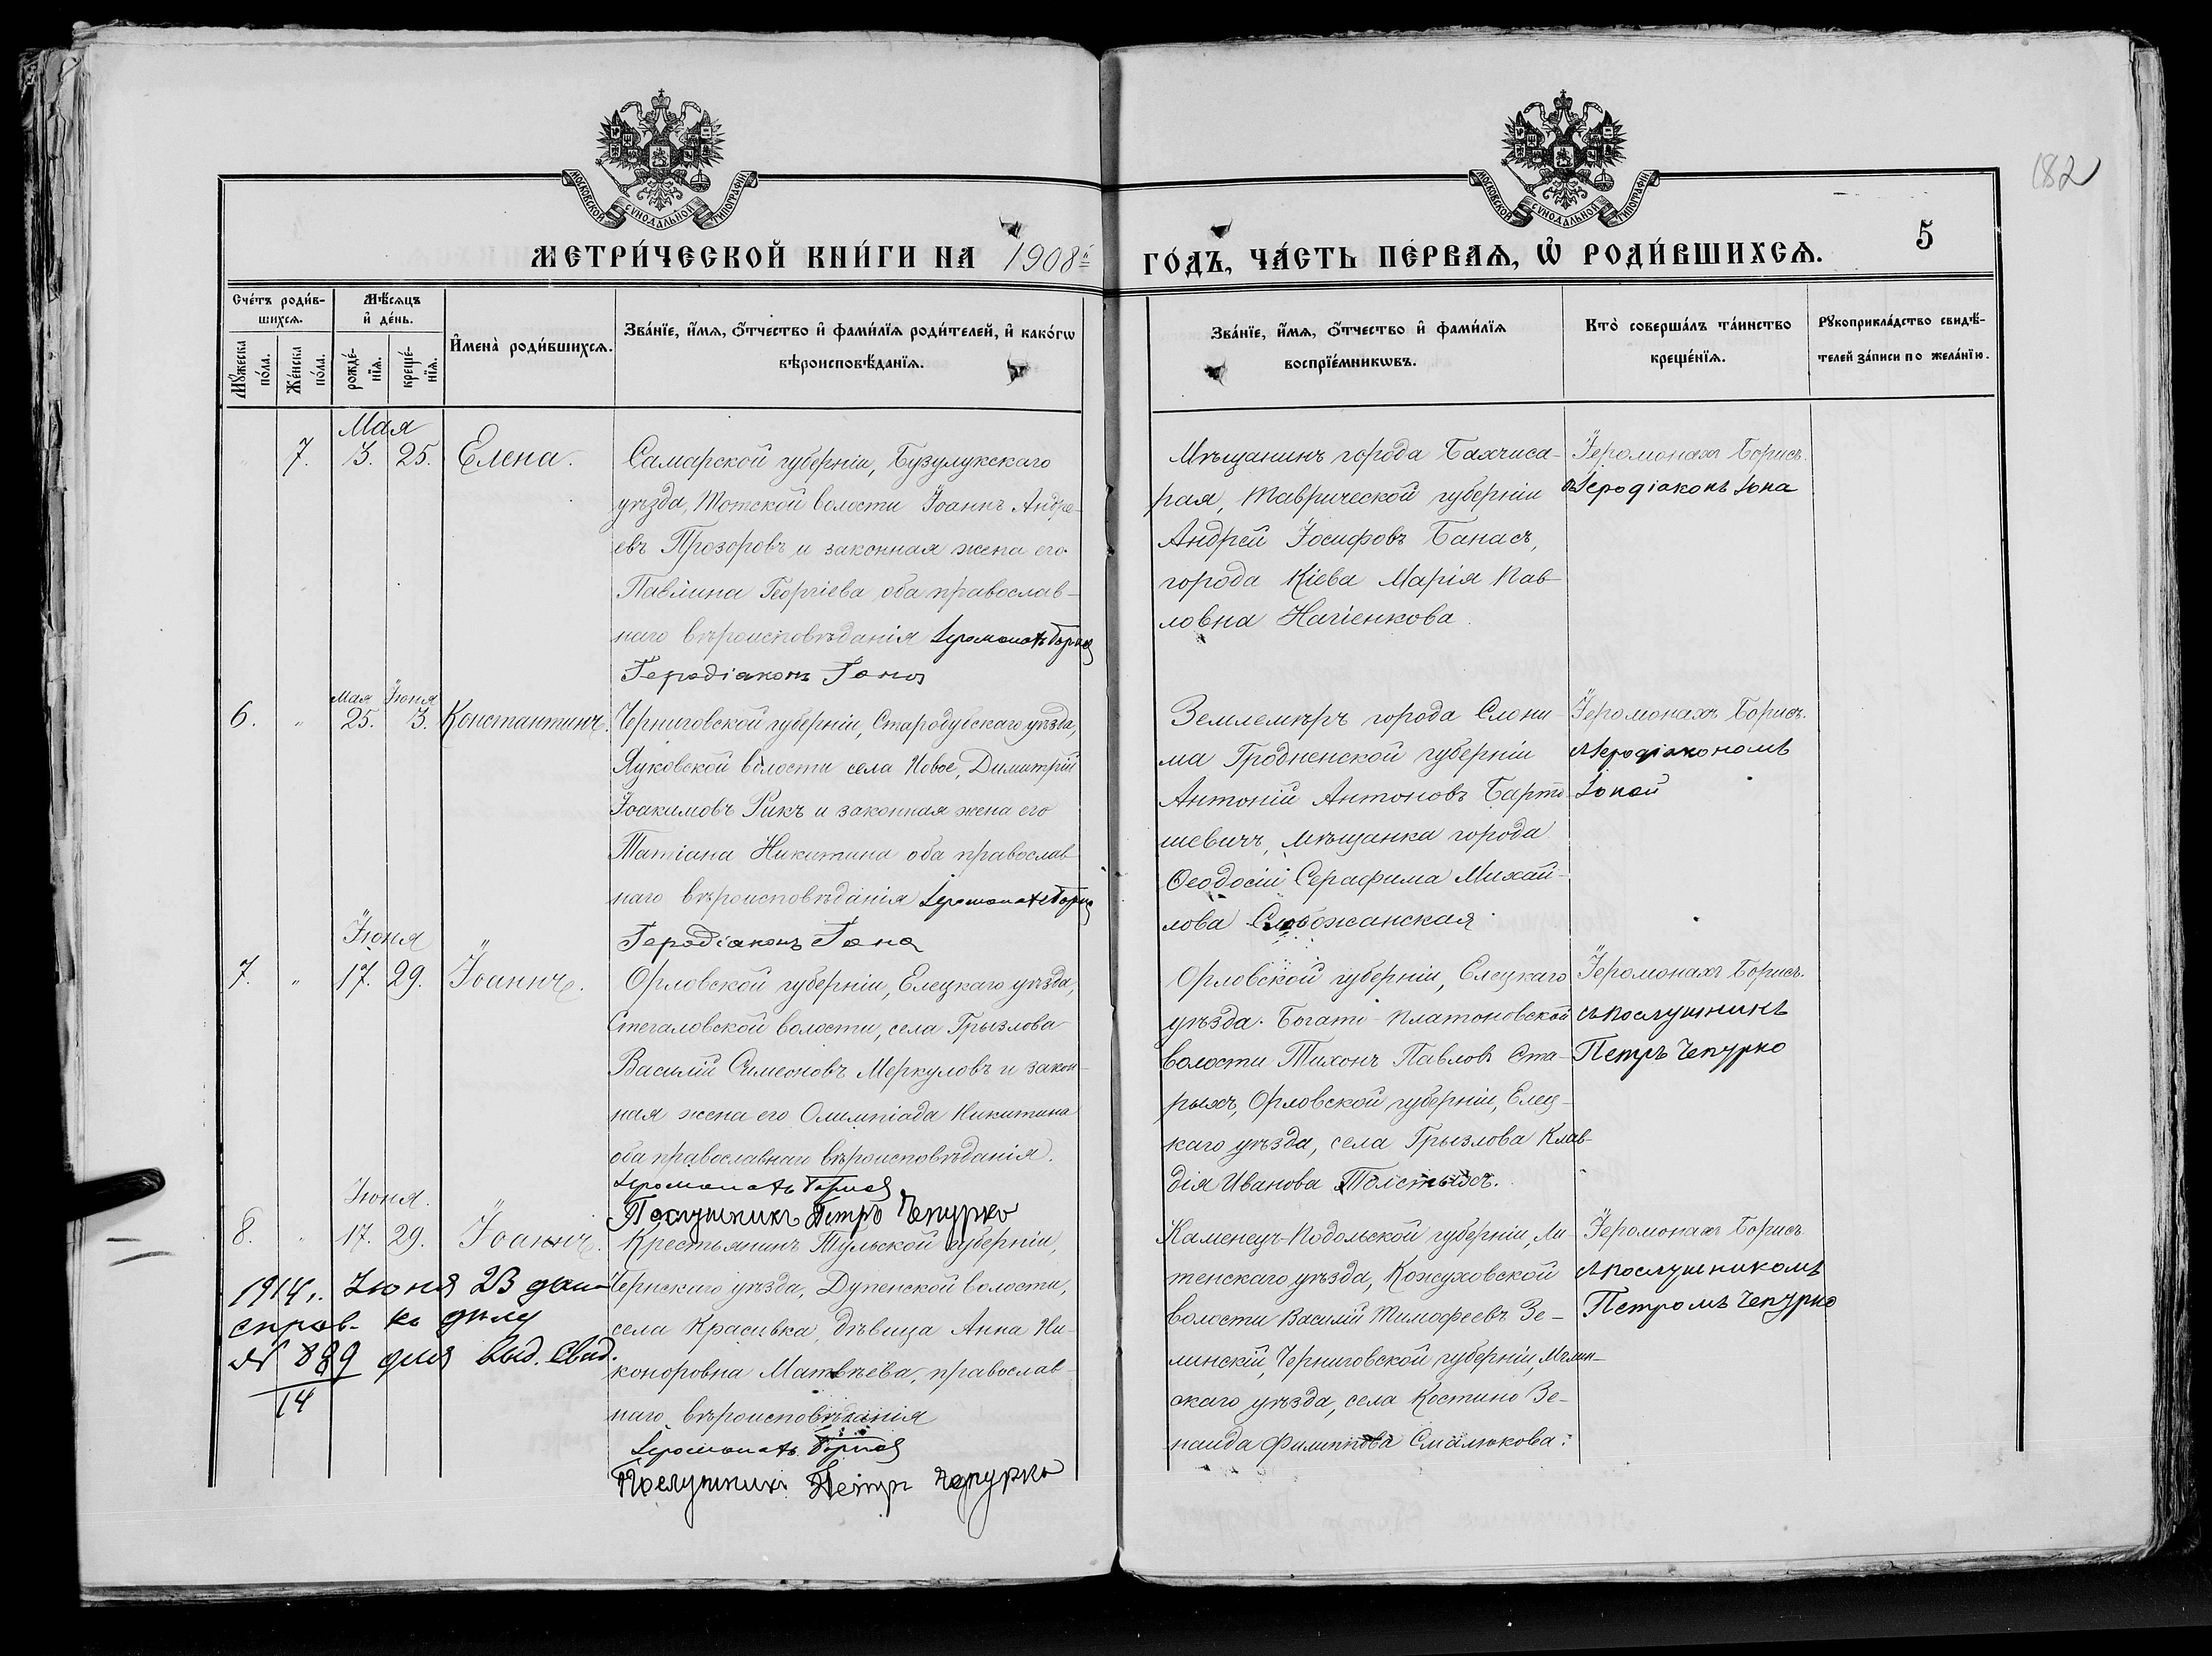 182
МОСКОВСКОЙ СУНОДАЛЬНОЙ ТИПОГРАФІИ
МОСКОВСКОЙ СУНОДАЛЬНОЙ ТИПОГРАФІИ
МЕТРИ́ЧЕСКОЙ КНИ́ГИ НА 1908й
ГО́ДЪ, ЧА́СТЬ ПЕ́РВАЯ, Ѽ РОДИ́ВШИХСѦ.
5
Сче́тъ роди́в-
шихсѧ.
Мꙋ́жеска по́ла.
Же́нска по́ла.
Мѣ́сѧцъ
и҆ де́нь.
рожде́-
нїѧ.
креще́-
нїѧ.
И҆мена̀ роди́вшихсѧ.
Зва́нїе, и҆́мѧ, ѻ҆́тчество и҆ фами́лїѧ роди́телей, и҆ како́гѡ
вѣроисповѣ́данїѧ.
Зва́нїе, и҆́мѧ, ѻ҆́тчество и҆ фами́лїѧ
воспрїе́мникѡвъ.
Кто̀ соверша́лъ та́инство
креще́нїѧ.
Рꙋкоприкла́дство свидѣ́-
телей за́писи по жела́нїю.
Мая
7. 3. 25. Елена.
Самарской губерніи, Бузулукскаго
уѣзда, Тотской волости Іоаннъ Андре-
евъ Прозоровъ и законная жена его
Павлина Георгіева оба православ-
наго вѣроисповѣданія Іеромонахъ Борисъ
Іеродіаконъ Іона
Мѣщанинъ города Бахчиса-
рая, Таврической губерніи
Андрей Іосифовъ Банасъ,
города Кіева Марія Пав-
ловна Нагіенкова.
Іеромонахъ Борисъ.
Іеродіаконъ Іона
Мая Іюня
6. " 25. 3. Константинъ.
Черниговской губерніи, Стародубскаго уѣзда,
волости села Новое, Димитрій
Іоакимовъ Рикъ и законная жена его
Татіана Никитина оба православ-
наго вѣроисповѣданія Іеромонахъ Борисъ
Іеродіаконъ Іона
Землемѣръ города Слони-
ма Гродненской губерніи
Антоній Антоновъ Барто-
шевичъ, мѣщанка города
Ѳеодосіи Серафима Михай-
лова Слобожанская.
Іеромонахъ Борисъ.
съ Іеродіакономъ
Іоной
Іюня
7. " 17. 29. Іоаннъ.
Орловской губерніи, Елецкаго уѣзда,
Стегаловской волости, села Грызлова
Василій Симеоновъ Меркуловъ и закон-
ная жена его Олимпіада Никитина
оба православнаго вѣроисповѣданія.
Іеромонахъ Борисъ
Послушникъ Петръ Чепурко
Орловской губерніи, Елецкаго
уѣзда. Богато-Платоновской
волости Тихонъ Павловъ Ста-
рыхъ, Орловской губерніи, Елец-
каго уѣзда, села Грызлова Клав-
дія Иванова Толстыхъ.
Іеромонахъ Борисъ.
съ послушникъ
Петръ Чепурко
Іюня.
8. " 17. 29. Іоаннъ.
Крестьянинъ Тульской губерніи,
Чернскаго уѣзда, Дупенской волости,
села Красивка, дѣвица Анна Ни-
коноровна Матвѣева, православ-
наго вѣроисповѣданія
Іеромонахъ Борисъ
Послушникъ Петръ Чепурко
Каменецъ-Подольской губерніи, Ли-
тенскаго уѣзда, Кожуховской
волости Василій Тимофеевъ Зе-
линскій, Черниговской губерніи, Мглин-
скаго уѣзда, села Костино Зе-
наида Филиппова Смалюкова.
Іеромонахъ Борисъ
съ послушникомъ
Петромъ Чепурко
1914 г. Іюня 23 дана
справ. къ дѣлу
№ 889 для выд. Свид.
14